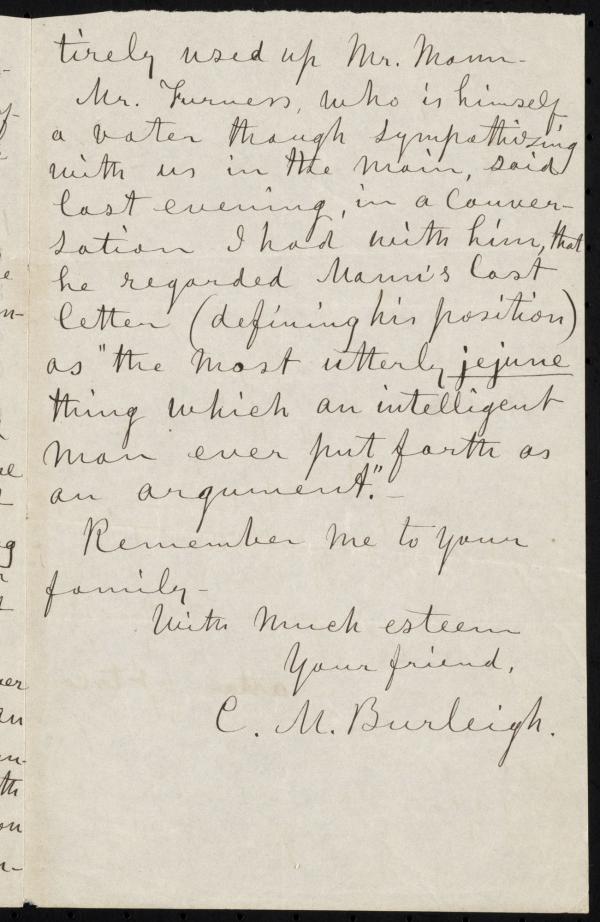 tirely used up Mr. Mann.
Mr. Furness, who is himself
a voter though sympathizing
with us in the main, said
last evening, in a conver-
sation I had with him, that
he regarded Mann's last
letter (defining his position)
as "the most utterly jejune
thing which an intelligent
man ever put forth as
an argument."
Remember me to your
family.
With much esteem
Your friend,
C. M. Burleigh.